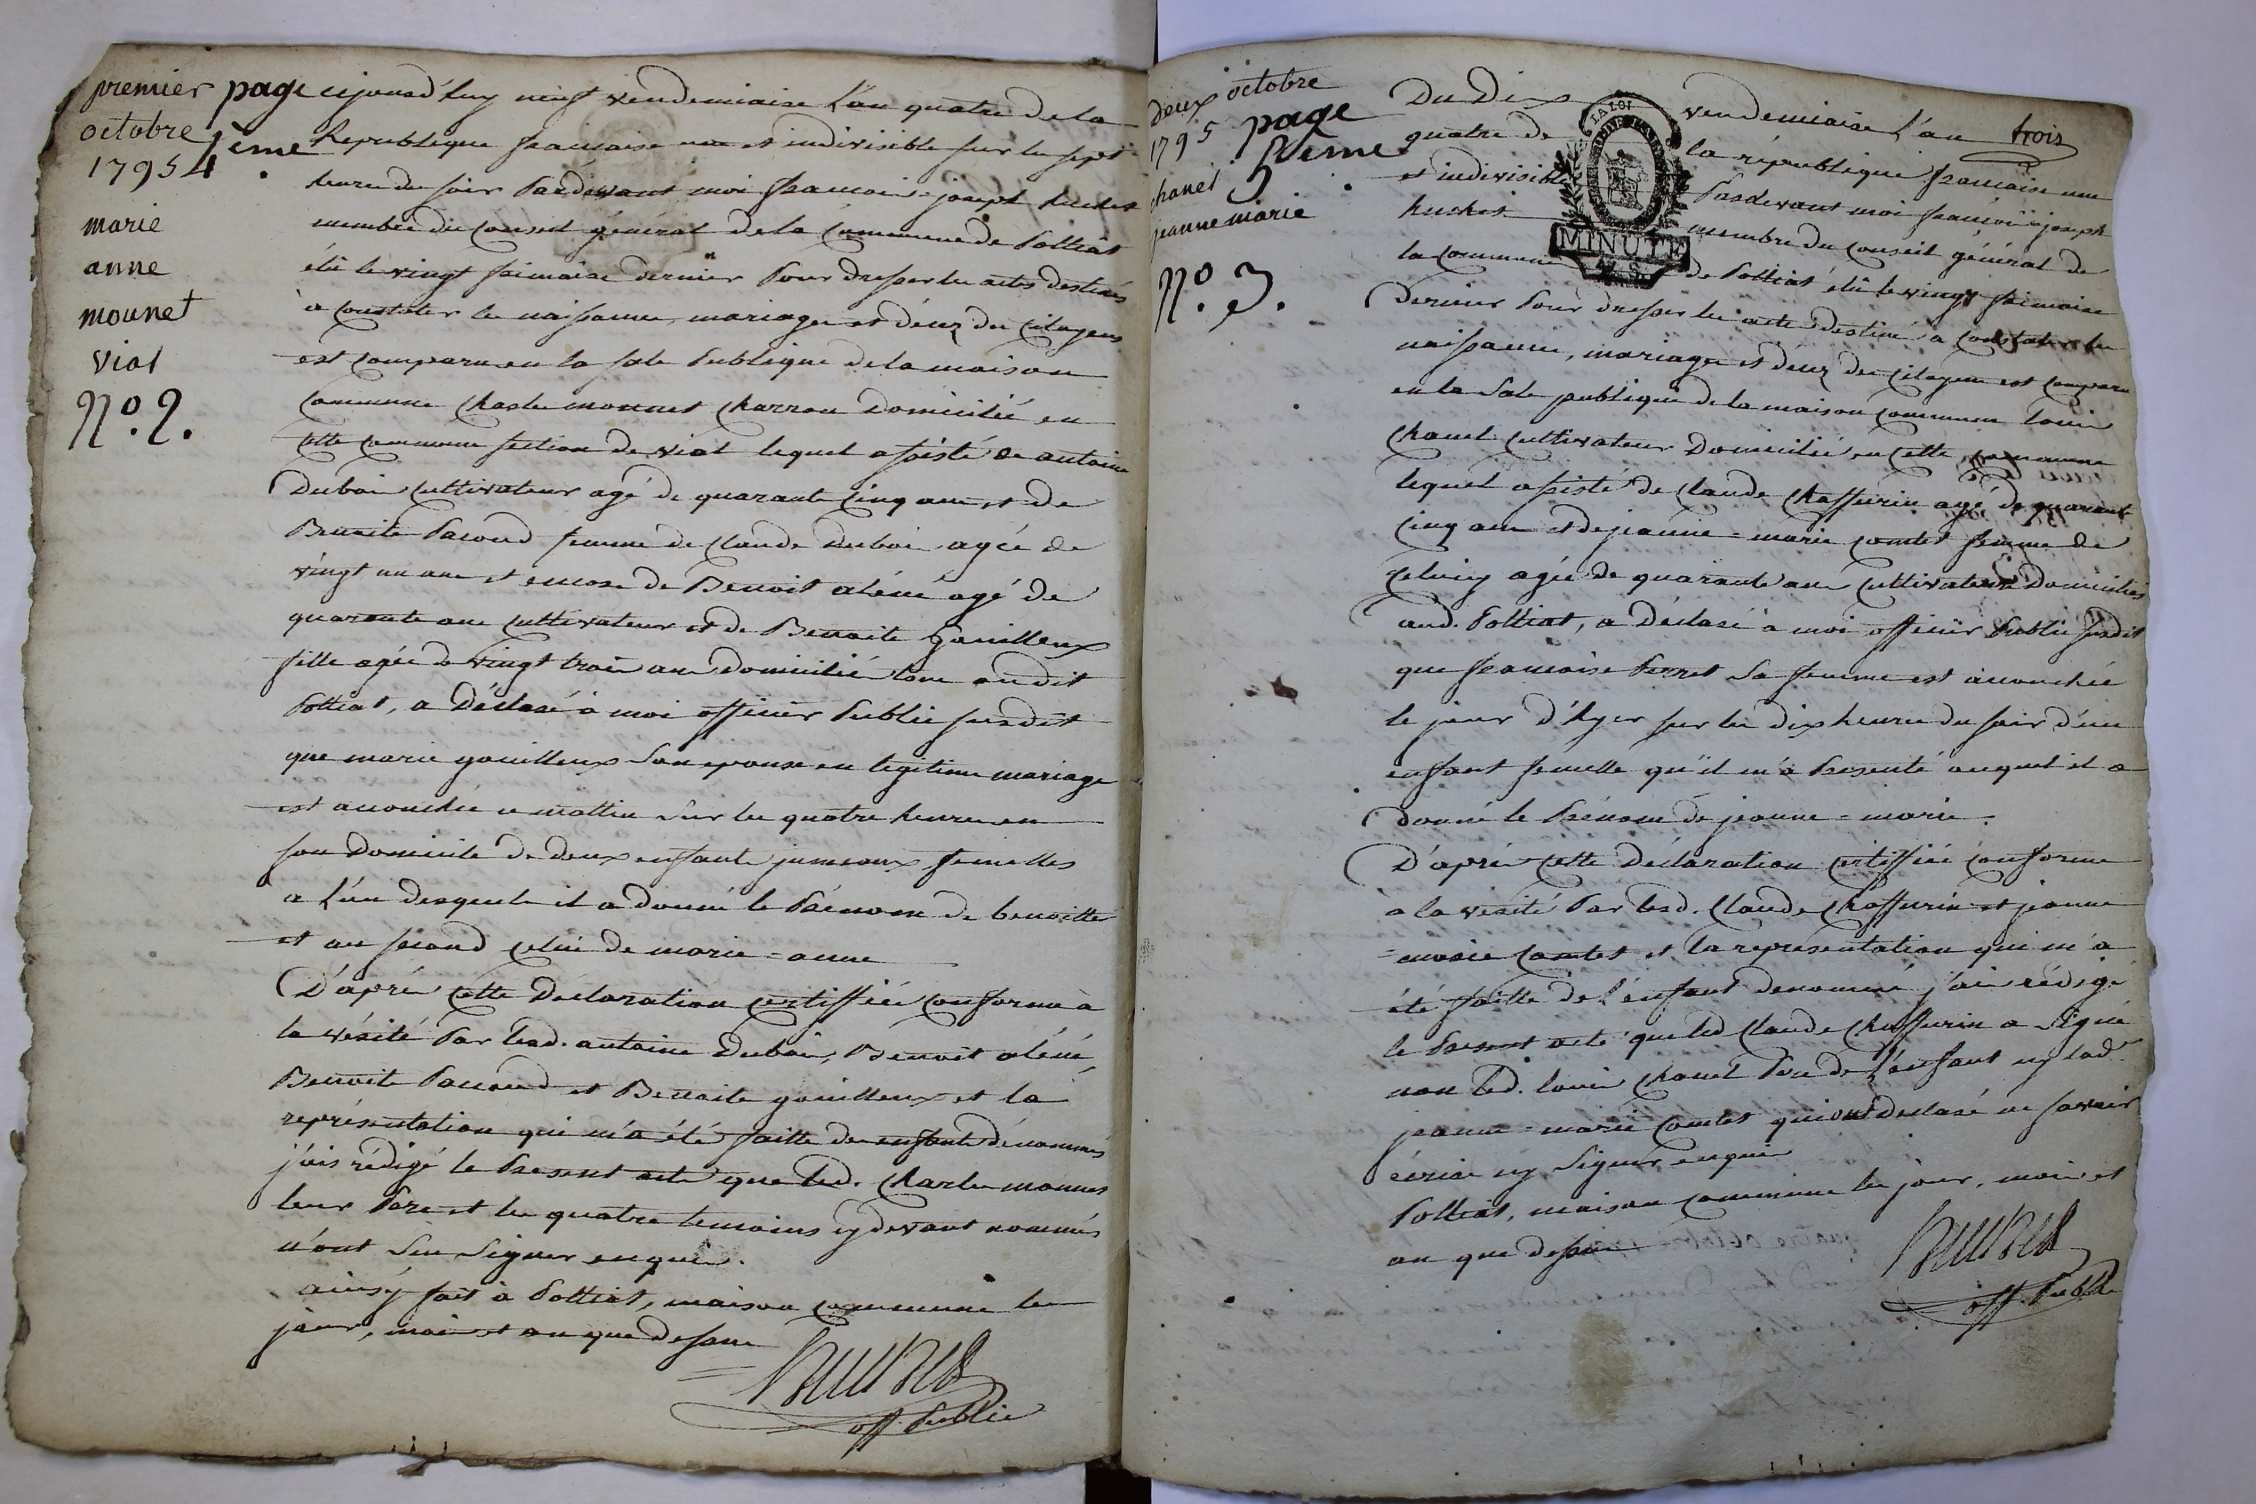 premier page
octobre 4ème
1795
marie
anne
mounet
viat
N°. 2.
cejourd'huy neuf vendemiaire l'an quatre de la
Republique francaise une et indivisible sur les sept
heures du soir Pardevant moi francois-joseph huchet
membre du Conseil général de la Commune de Polliat
élu le vingt frimaire dernier Pour dresser les actes destinés
à constater les naissances, mariages et décez des citoyens
est comparu en la sale Publique de la maison
Commune Charles mounet charron Domicilié en
cette commune section de viat lequel assisté de antoine
Duboi cultivateur agé de quarante cinq ans et de
Benoite Pacoud femme de Claude Duboi agée de
vingt un ans et encore de Benoit aléné agé de
quarante ans cultivateur et de Benoite gouilleux
fille agée de vingt trois ans Domiciliés tous au dit
Polliat, a Déclaré à moi officier Public susdit
que marie gouilleux son epouse en legitime mariage
est acouchée ce mattin sur les quatre heures en
son Domicile de deux enfants jumeaux femelles
a l'un desquels il a donné le Prénom de benoitte
et au second celui de marie-anne
D'aprés cette Déclaration certiffiée conforme à
la vérité Par lesd. antoine Duboi, Benoit aléné,
Benoite Pacoud et Benoite gouilleux et la
représentation qui m'a été faitte des enfants dénommés
j'ais rédigé le Present acte que led. Charles mounet
leur Pere et les quatre temoins cydevant nommés
n'ont seu signer enquis.
ainsy fait à Polliat, maison commune les
jour, mois et an que dessus
huchet
off. Public
deux octobre
1795 page
5eme
chanel
jeanne marie
N°. 3.
trois
Du Dix vendemiaire l'an
quatre de la république francaise une
et indivisible Pardevant moi francois joseph
huchet membre du conseil général de
la commune de Polliat élu le vingt frimaire
dernier Pour dresser les actes destinés a constater les
naissances, mariages et décez des citoyens est comparu
en la sale publique de la maison commune Louis
chanel cultivateur Domicilié en cette commune
lequel assisté de Claude Chaffurin agé de quarant
cinq ans et de jeanne-marie comtet femme de
celuicy agée de quarante ans cultivateurs Domiciliés
aud. Polliat, a Déclaré à moi officier Public susdit
que francoise Perret sa femme est acouchée
le jour d'hyer sur les dix heures du soir d'un
enfant femelle qu'il m'a Presenté auquel il a
donné le Prénom de jeanne-marie.
D'aprés cette Déclaration certiffiée conforme
à la vérité Par lesd. Claude Chaffurin et jeanne
-marie comtet et la representation qui m'a
été faitte de l'enfant denommé j'ais rédigé
le Present acte que led Claude Chaffurin a signé
non led. Louis chanel Pere de l'enfant ny lad.
jeanne-marie comtet qui ont declaré ne savoir
écrire ny signer enquis
Polliat, maison commune les jour, mois et
an que dessus
huchet
off. Public
LA LOI
MINUTE